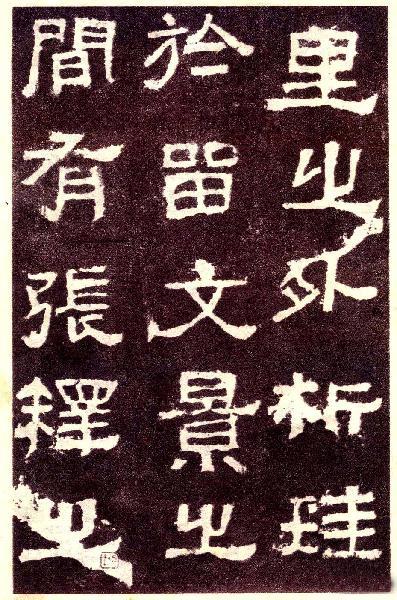 里之外析珪
於留文景之
間有張釋之